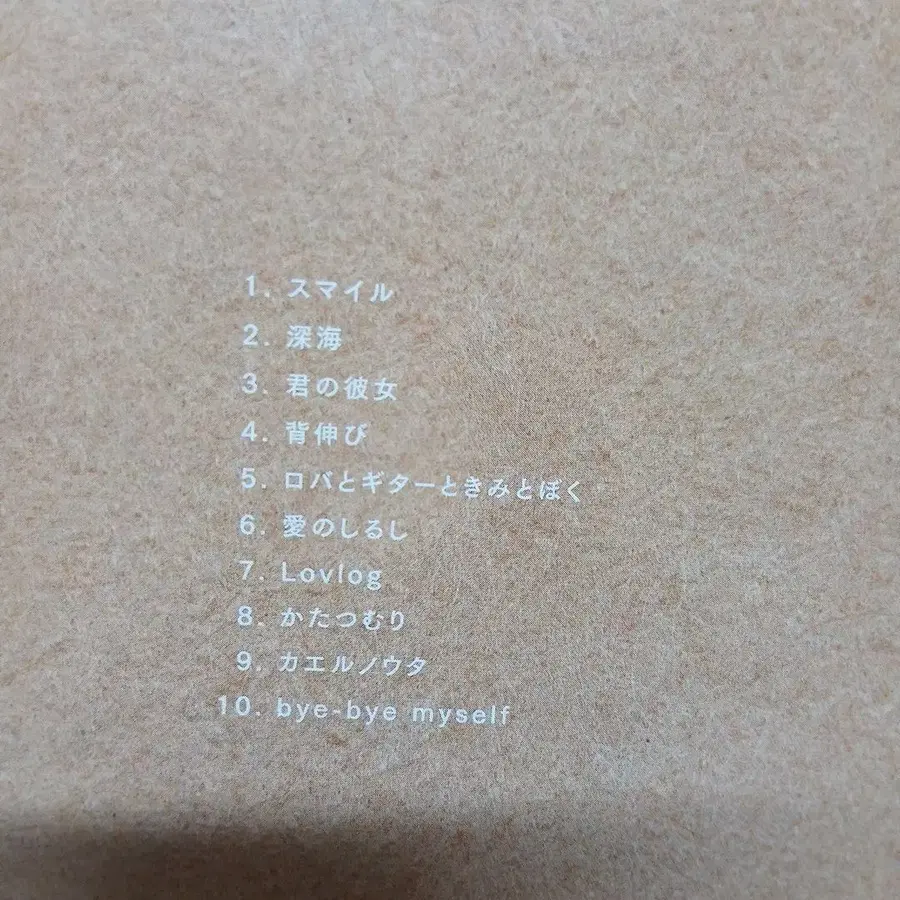 1. スマイル
2. 深海
3. 君の彼女
4. 背伸び
5. ロバとギターときみとぼく
6. 愛のしるし
7. Lovlog
8. かたつむり
9. カエルノウタ
10. bye-bye myself